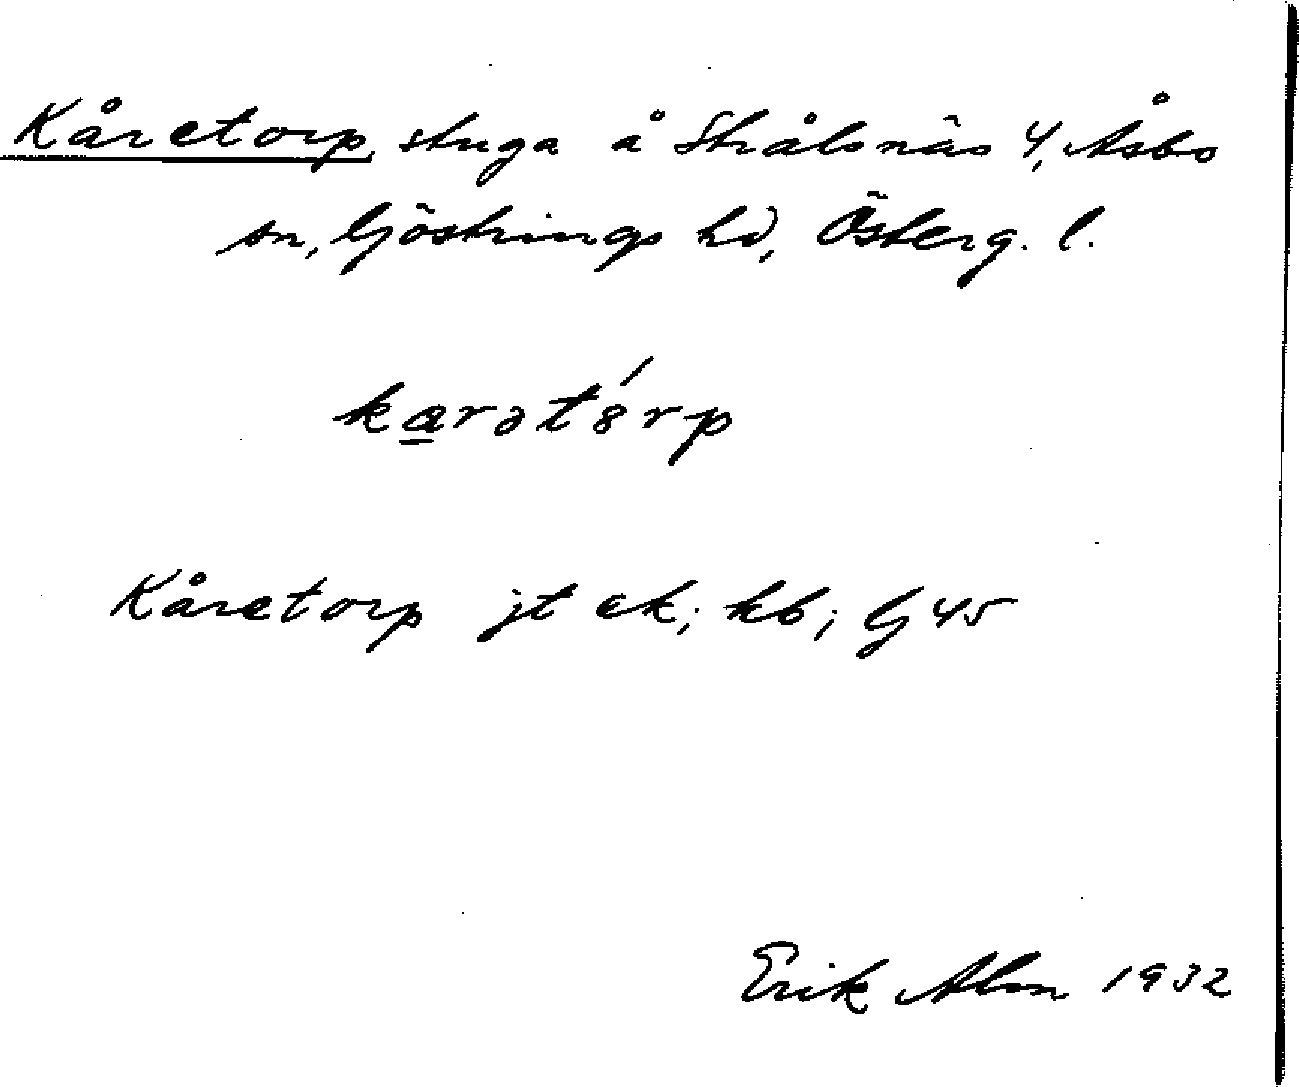 Kåretorp, stuga å Strålsnäs 4, Åsbo
sn, Göstrings hd, Österg. l.
karətórp
Kåretorp jt ek; kb; G 45
Erik Alm 1932